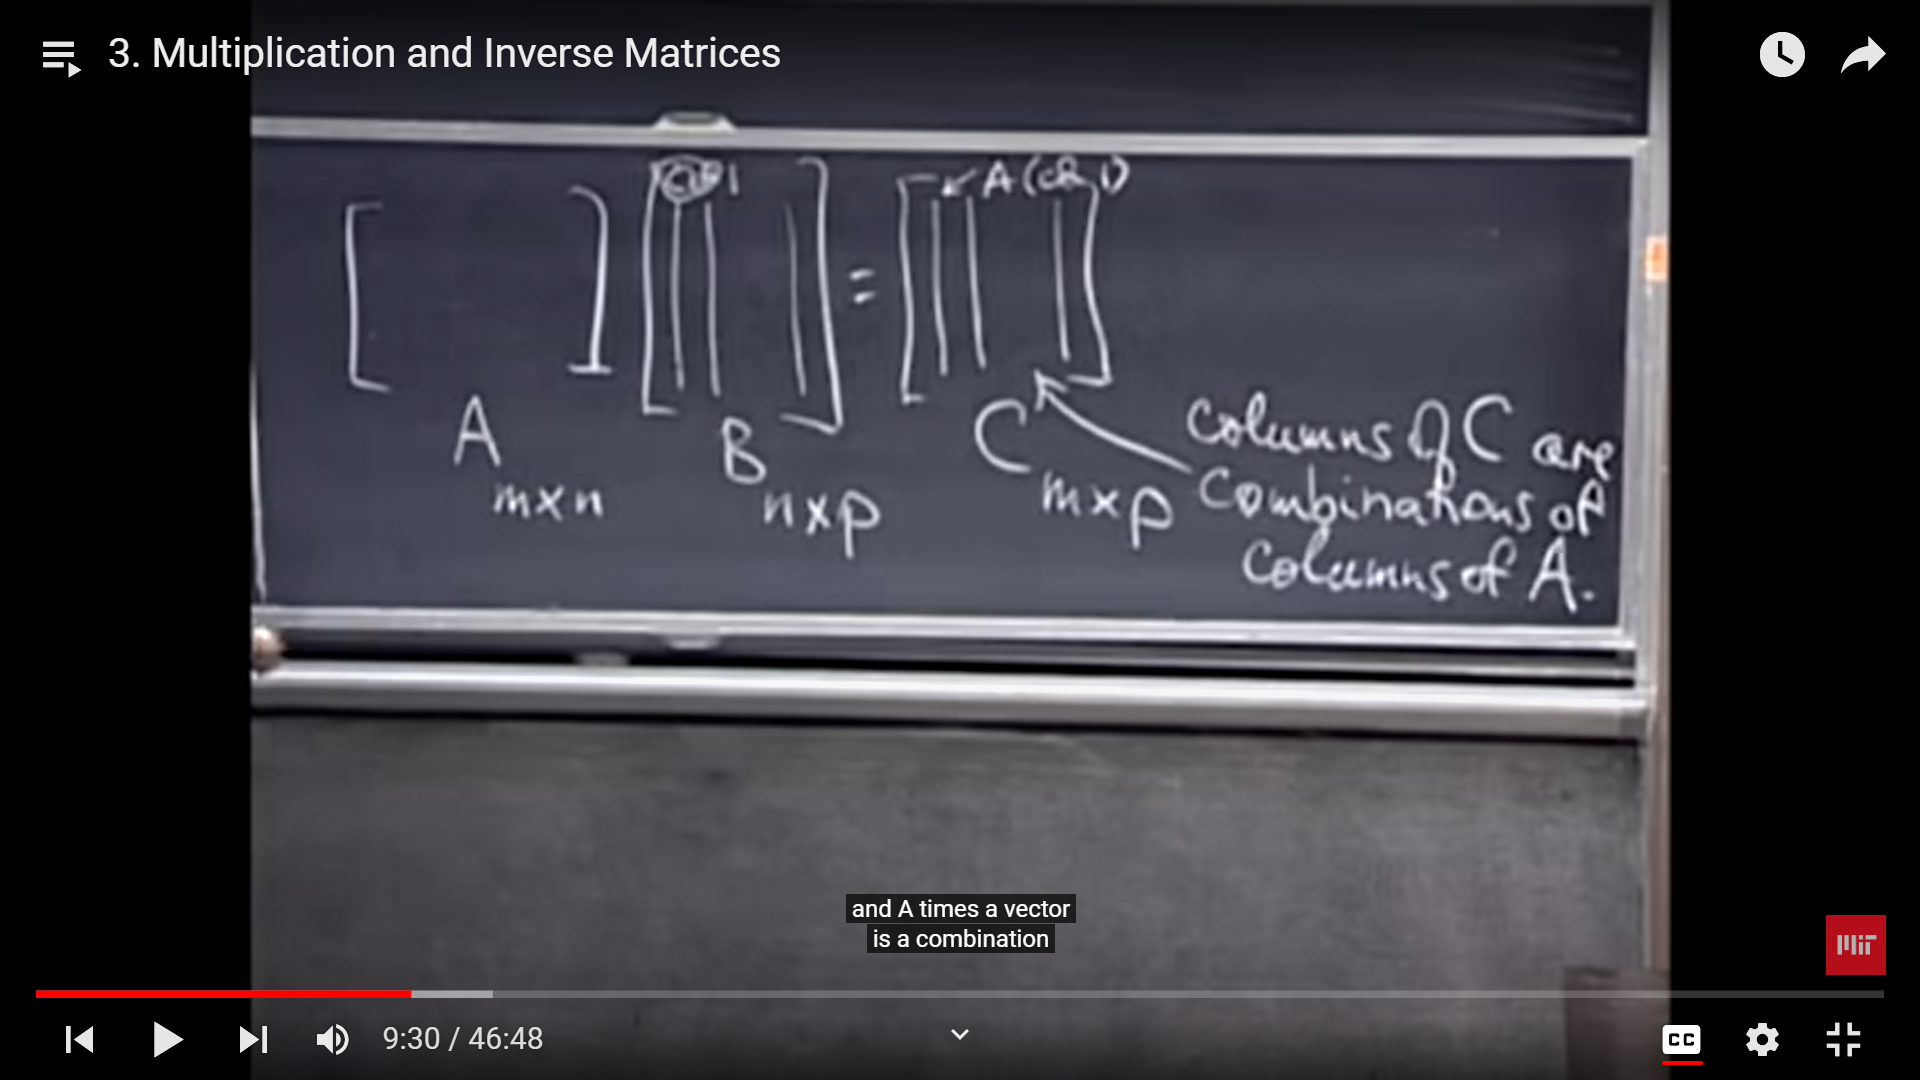 3. Multiplication and Inverse Matrices
col 1
A (col 1)
[ ] [ ] = [ ]
A
m×n
B
n×p
C
m×p
columns of C are
combinations of
columns of A.
and A times a vector
is a combination
MIT
9:30 / 46:48
CC